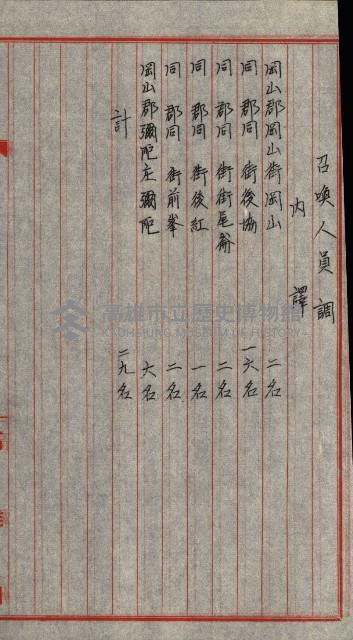 召喚人員調
內譯
岡山郡岡山街岡山 二名
同郡同街後協 一六名
同郡同街街尾崙 二名
同郡同街後紅 一名
同郡同街前峯 二名
岡山郡彌陀庄彌陀 六名
計 二九名
高雄市立歷史博物館
KAOHSIUNG MUSEUM OF HISTORY